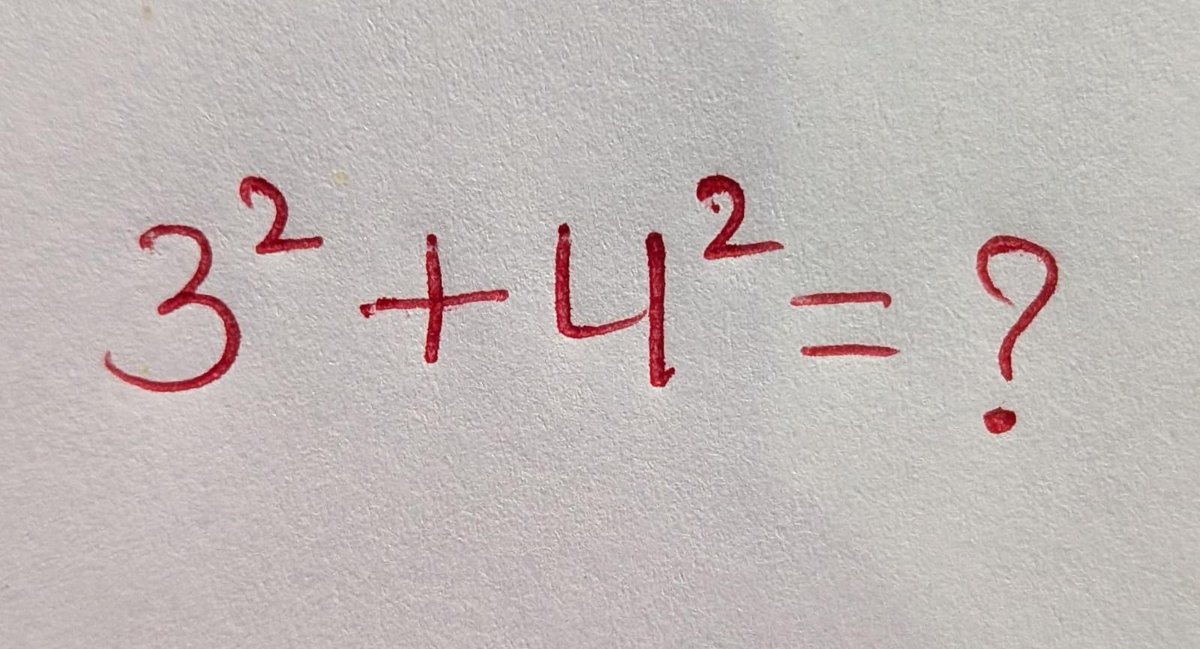 3² + 4² = ?